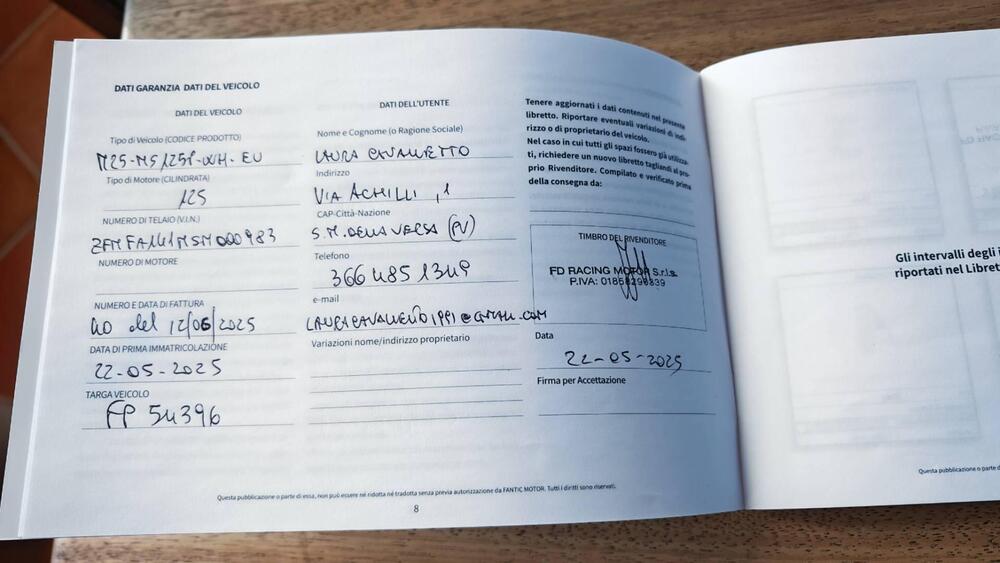 DATI GARANZIA DATI DEL VEICOLO
DATI DEL VEICOLO
Tipo di Veicolo (CODICE PRODOTTO)
M25-MS125P-WH-EU
Tipo di Motore (CILINDRATA)
125
NUMERO DI TELAIO (V.I.N.)
NUMERO DI MOTORE
NUMERO E DATA DI FATTURA
del 12/06/2025
DATA DI PRIMA IMMATRICOLAZIONE
22-05-2025
TARGA VEICOLO
FP 54396
DATI DELL'UTENTE
Nome e Cognome (o Ragione Sociale)
LAURA CAVALLETTO
Indirizzo
VIA ACHILLI, 1
CAP-Città-Nazione
S.M. DELLA VERSA (PV)
Telefono
366 485 1349
e-mail
Variazioni nome/indirizzo proprietario
Tenere aggiornati i dati contenuti nel presente
libretto. Riportare eventuali variazioni di indi-
rizzo o di proprietario del veicolo.
Nel caso in cui tutti gli spazi fossero già utilizza-
ti, richiedere un nuovo libretto tagliandi al pro-
prio Rivenditore. Compilato e verificato prima
della consegna da:
TIMBRO DEL RIVENDITORE
FD RACING MOTOR S.r.l.s.
P.IVA:
Data
22-05-2025
Firma per Accettazione
Questa pubblicazione o parte di essa, non può essere né ridotta né tradotta senza previa autorizzazione da FANTIC MOTOR. Tutti i diritti sono riservati.
8
Gli intervalli degli
riportati nel
Questa pubblicazione o parte